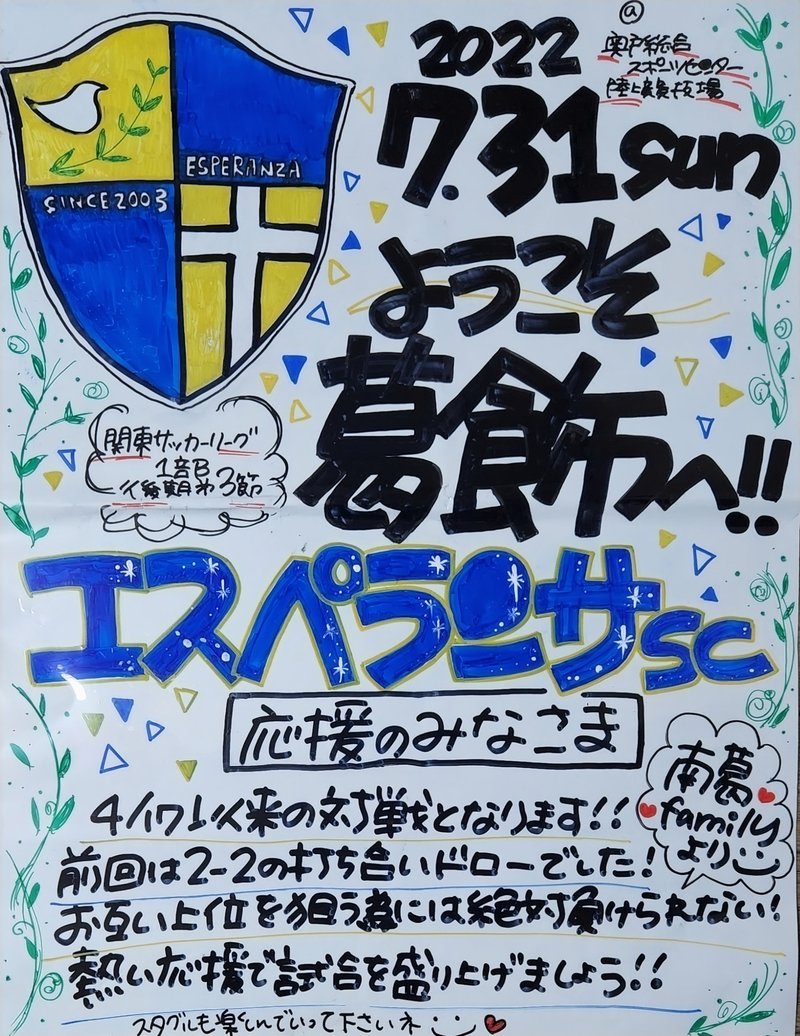 @
奥戸総合
スポーツセンター
陸上競技場
2022
7.31 sun
ESPERANZA
SINCE 2003
ようこそ
葛飾へ!!
関東サッカーリーグ
1部
後期第3節
エスペランサSC
応援のみなさま
南葛
family
より
4/17以来の対戦となります!!
前回は2-2の打ち合いドローでした!
お互い上位を狙う為には絶対負けられない!
熱い応援で試合を盛り上げましょう!!
スタグルも楽しんでいって下さいネ